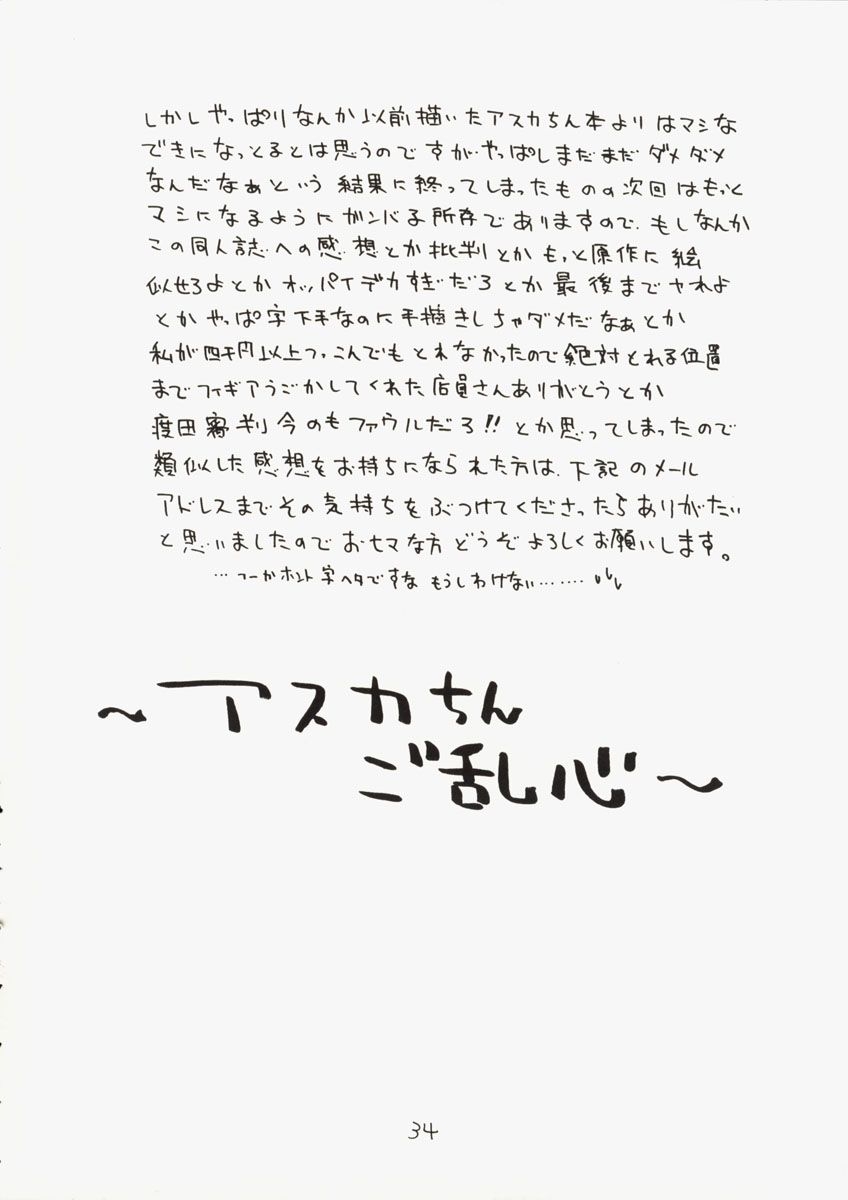 しかしやっぱりなんか以前描いたアスカちん本よりはマシな
できになっとるとは思うのですがやっぱしまだまだダメダメ
なんだなぁという結果に終ってしまったものの次回はもっと
マシになるようにガンバる所存でありますので、もしなんか
この同人誌への感想とか批判とかもっと原作に絵
似せろよとかオッパイデカすぎだろとか最後までヤれよ
とかやっぱ字下手なのに手描きしちゃダメだなぁとか
私が四千円以上つっこんでもとれなかったので絶対とれる位置
までフィギアうごかしてくれた店員さんありがとうとか
渡田審判今のもファウルだろ!!とか思ってしまったので
類似した感想をお持ちになられた方は、下記のメール
アドレスまでその気持ちをぶつけてくださったらありがたい
と思いましたのでおヒマな方どうぞよろしくお願いします。
…つーかホント字ヘタですな もうしわけない……
〜アスカちん
ご乱心〜
34